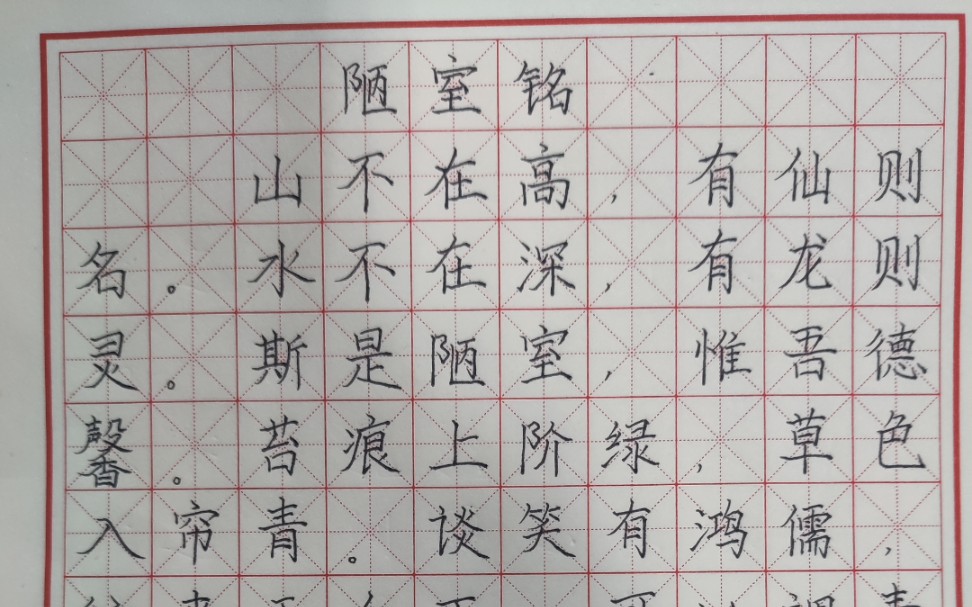 陋室铭
山不在高,有仙则
名。水不在深,有龙则
灵。斯是陋室,惟吾德
馨。苔痕上阶绿,草色
入帘青。谈笑有鸿儒,